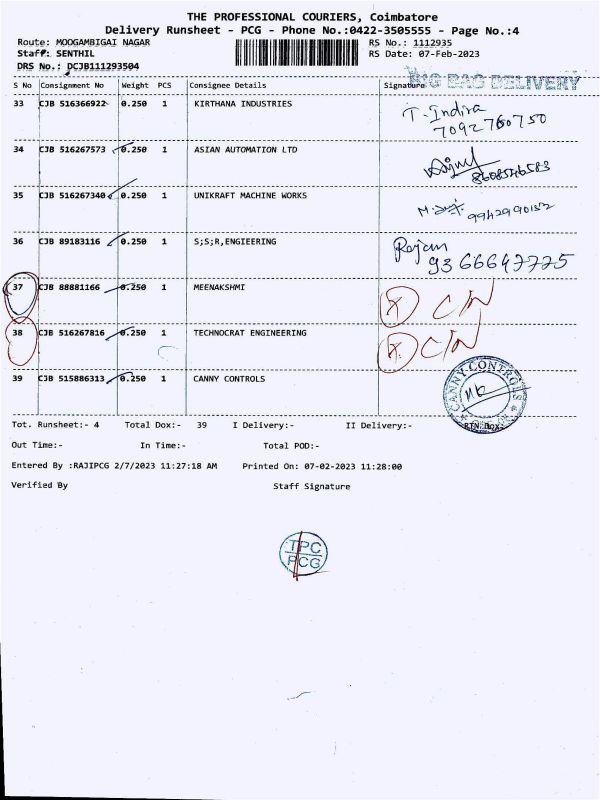 THE PROFESSIONAL COURIERS, Coimbatore
Delivery Runsheet - PCG - Phone No.:0422-3505555 - Page No.:4
Route: MOOGAMBIGAI NAGAR RS No.: 1112935
Staff: SENTHIL RS Date: 07-Feb-2023
DRS No.: DCJB111293504
BIG BAG DELIVERY
S No Consignment No Weight PCS Consignee Details Signature
33 CJB 516366922 0.250 1 KIRTHANA INDUSTRIES T. Indira
7092760750
34 CJB 516267573 0.250 1 ASIAN AUTOMATION LTD
8608546583
35 CJB 516267340 0.250 1 UNIKRAFT MACHINE WORKS
9942990152
36 CJB 89183116 0.250 1 S;S;R,ENGIEERING Rajan
9366647725
37 CJB 88881166 0.250 1 MEENAKSHMI C/N
38 CJB 516267816 0.250 1 TECHNOCRAT ENGINEERING C/N
39 CJB 515886313 0.250 1 CANNY CONTROLS CANNY CONTROLS
Tot. Runsheet:- 4 Total Dox:- 39 I Delivery:- II Delivery:- RTN Dox:-
Out Time:- In Time:- Total POD:-
Entered By :RAJIPCG 2/7/2023 11:27:18 AM Printed On: 07-02-2023 11:28:00
Verified By Staff Signature
TPC
PCG